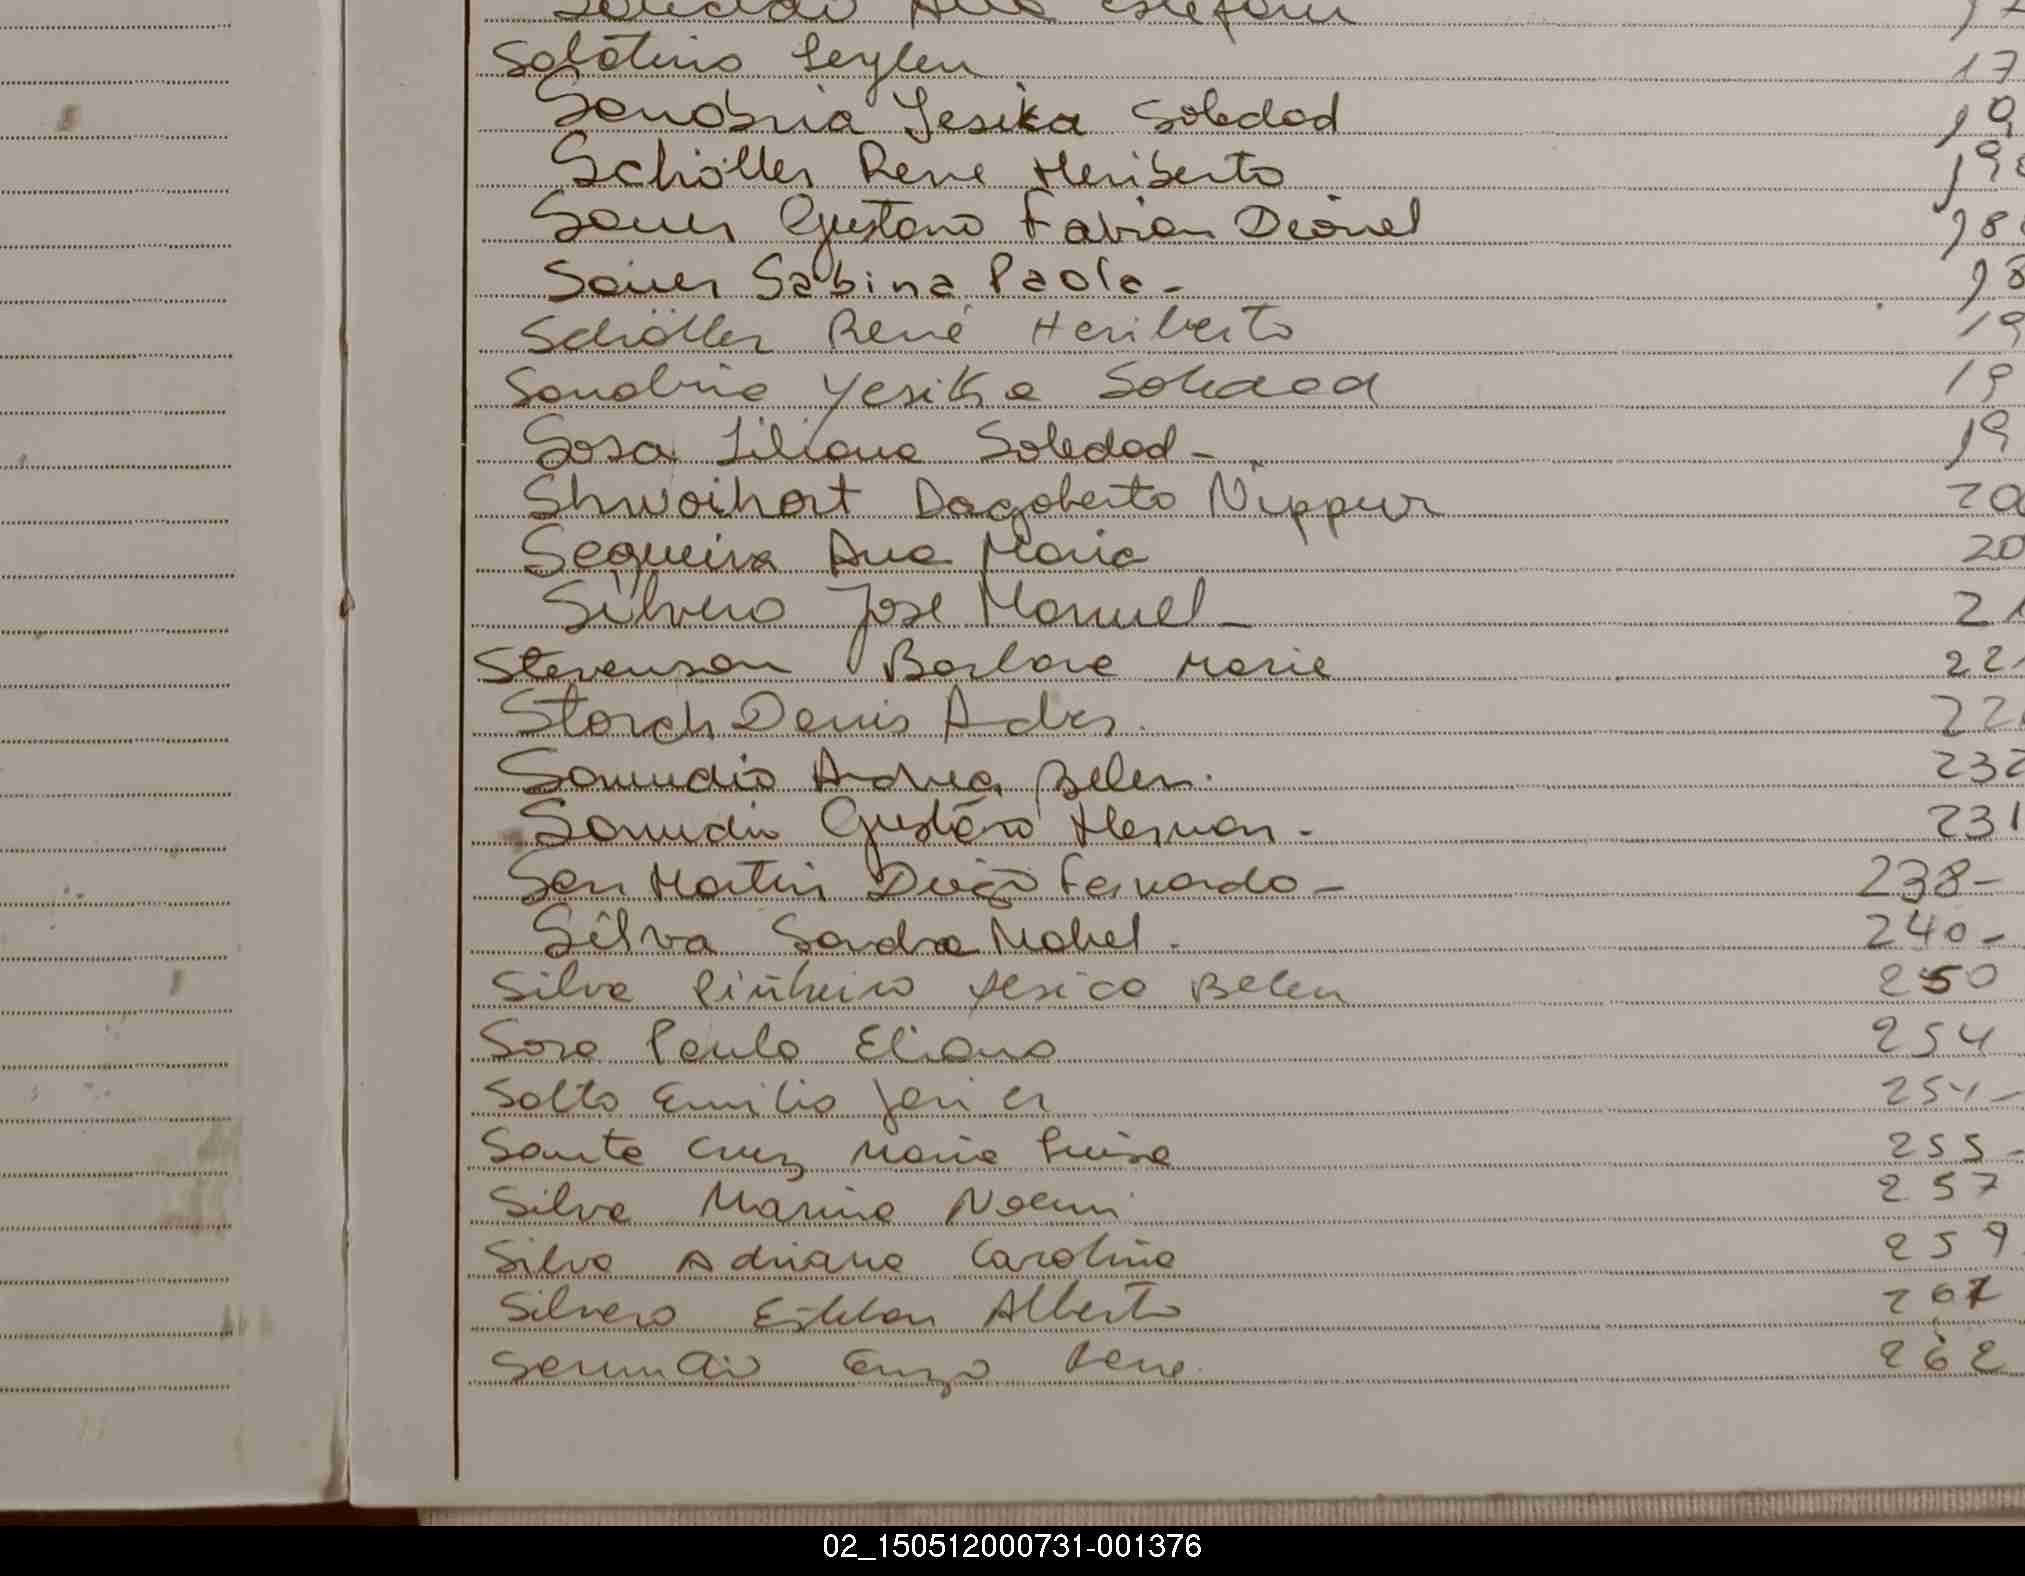 Soledad Ana Estefani 17
Solotino Leylen 17
Sanabria Jesika Soledad 19
Schöller Rene Heriberto 19
Sauer Gustavo Fabian Deonel 18
Sauer Sabina Paola - 18
Schöller René Heriberto 19
Sanabria Yesika Soledad 19
Sosa Liliana Soledad - 19
Shwoihort Dagoberto Nippur 20
Sequeira Ana Maria 20
Silvero Jose Manuel - 21
Stevenson Barbara Maria 22
Storch Denis 22
Samudio Andrea Belen. 232
Samudio Gustavo Hernan - 231
San Martin Diego Fernando - 238-
Silva Sandra Mabel. 240-
Silva Piñheiro Yesica Belen 250
Sosa Paula Eliana 254
Solto Emilio Javier 254-
Santa Cruz Maria Luisa 255-
Silva Marina Noemi 257
Silva Adriana Carolina 259
Silvero Esteban Alberto
Enzo Rene. 262
02_150512000731-001376